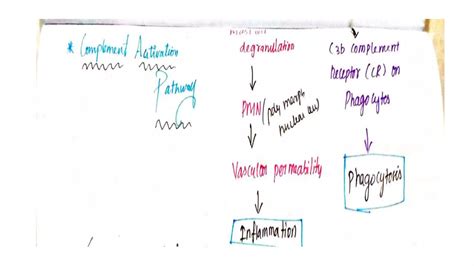 * Complement Activation
Pathway
degranulation
PMN (poly morph
nuclear
Vascular permeability
Inflammation
C3b complement
Receptor (CR) on
Phagocytes
Phagocytosis